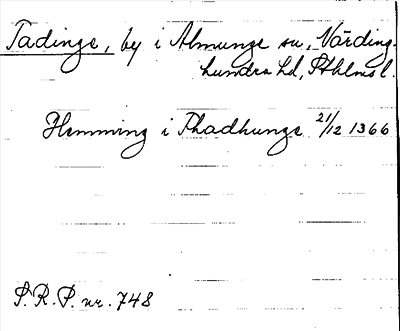 Tadinge, by i Almunge sn, Närding-
hundra hd, Sthlms l.
Hemming i Thadhunge 21/12 1366
S.R.P. nr. 748